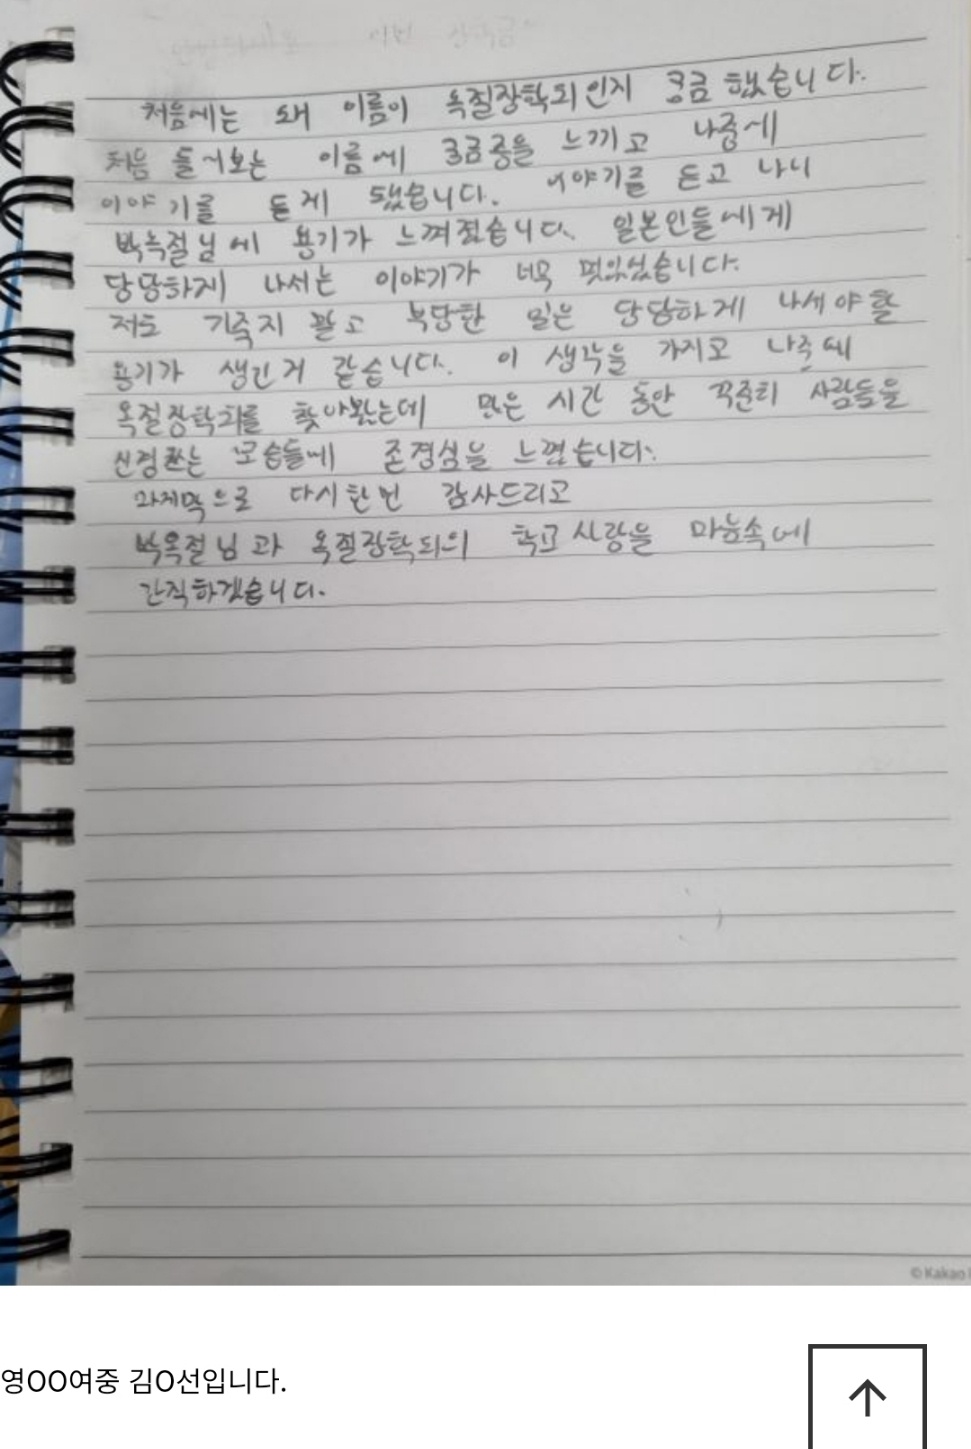 처음에는 왜 이름이 옥절장학회인지 궁금했습니다.
처음 들어보는 이름에 궁금증을 느끼고 나중에
이야기를 듣게 됐습니다. 이야기를 듣고 나니
박옥절님에 용기가 느껴졌습니다. 일본인들에게
당당하게 나서는 이야기가 너무 멋있었습니다.
저도 기죽지 말고 부당한 일은 당당하게 나서야 할
용기가 생긴거 같습니다. 이 생각을 가지고 나중에
옥절장학회를 찾아봤는데 많은 시간 동안 꾸준히 사람들을
신경쓰는 모습들에 존경심을 느꼈습니다.
마지막으로 다시한번 감사드리고
박옥절님과 옥절장학회의 학교사랑을 마음속에
간직하겠습니다.
© Kakao
영OO여중 김O선입니다.